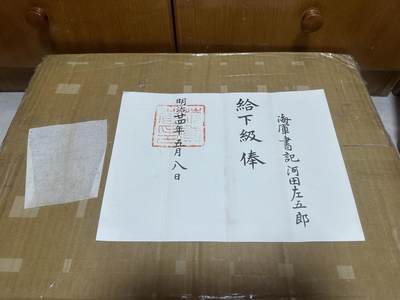 海軍書記河田左五郎
給下級俸
明治廿四年五月八日